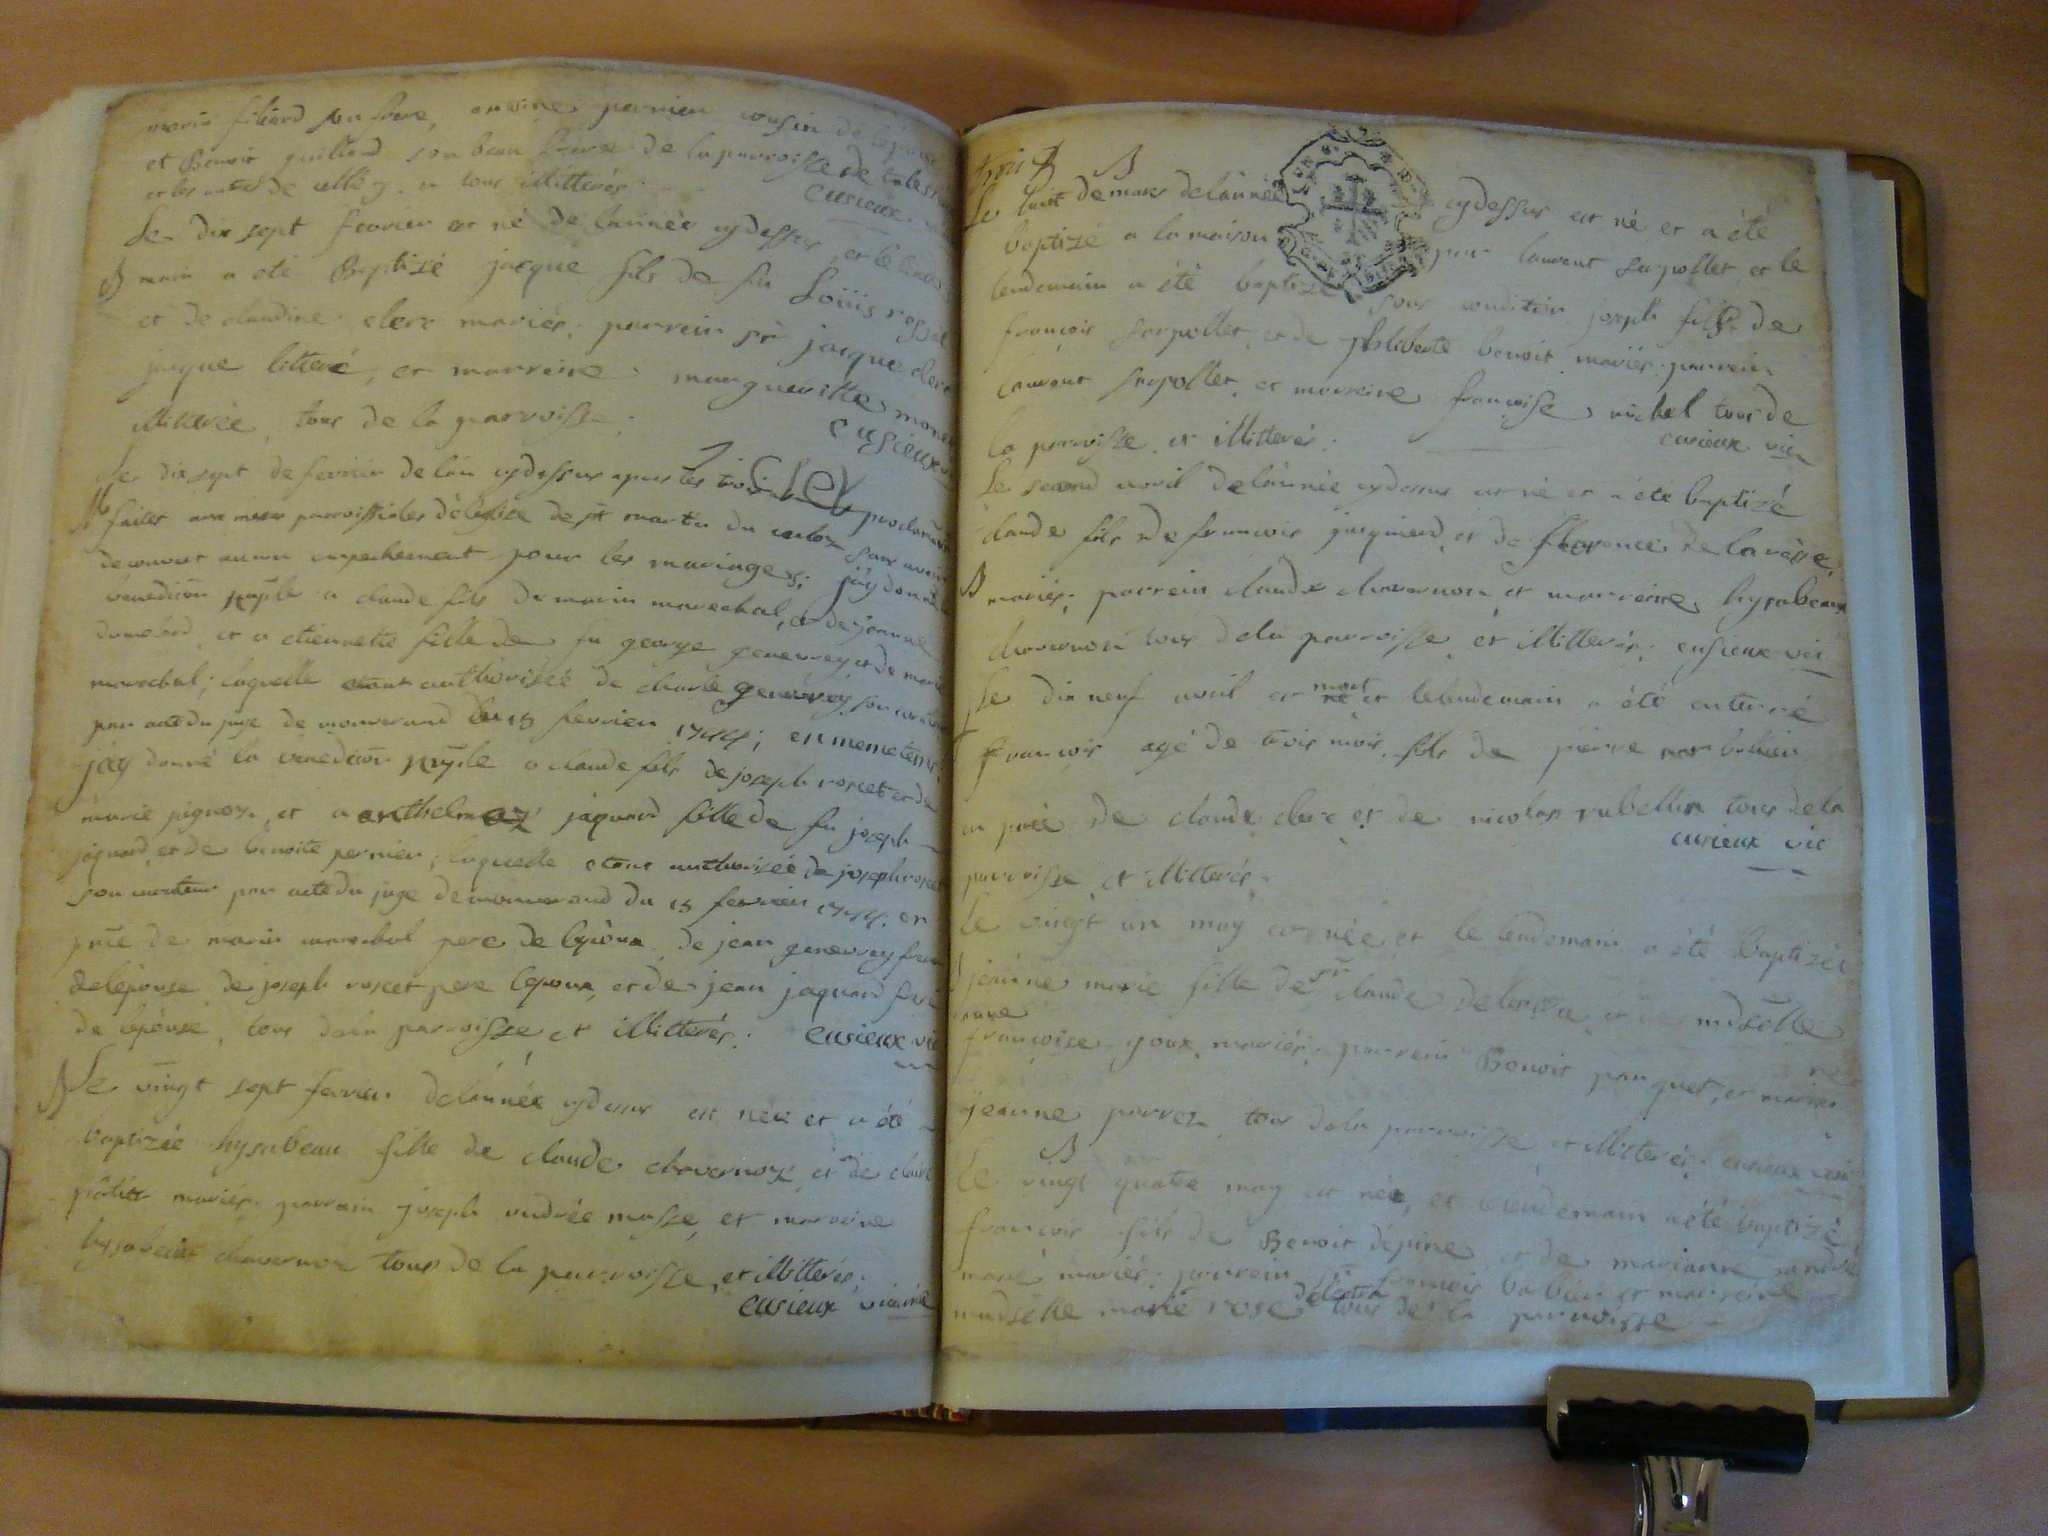 marin filiard son frere, antoine perrier cousin de lépouse
et Benoit guilland son beau frere de la parroisse de
et les autres de celle cy. et tous illitterés. cusieux
Le dix sept fevrier est né de lannée cydessus, et le lende
B main a été Baptisé jacque fils de feu Loüis rosset
et de claudine clerc mariés. parrein sr jacque clerc
jacque litteré, et marreine margueritte monet
illiterée, tous de la parroisse. cusieux
clerc
Le dix sept de fevrier de lan cydessus apres les trois proclamations
M faites aux messes parroissiales déglise de st martin du sans avoir
decouvert aucun empechement pour les mariages; jäy donné la
benediction nuptiale a claude fils de marin marechal, et de jeanne
et a etiennette fille de feu george genevrey et de marie
marechal; laquelle etant authorisée de charle genevrey son curateur
par acte du juge de du 15 fevrier 1744; en meme tems
jäy donné la benediction nuptiale a claude fils de joseph rosset et de
marie pignon, et a anthelmaz jaquand fille de feu joseph
jaquand, et de benoite perrier; laquelle etant authorisée de joseph rosset
son curateur par acte du juge de du 15 fevrier 1744. en
pnce de marin marechal pere de lepoux, de jean genevrey frere
de lépouse, de joseph rosset pere lepoux, et de jean jaquand frere
de lépouse, tous de la parroisse et illitterés. cusieux vic
B Le vingt sept fevrier de lannée cydessus est née et a été
baptizée hysabeau fille de claude chavernoz et de claire
mariés. parrain joseph andrée masse, et marreine
hysabeau chavernoz tous de la parroisse, et illitterés;
cusieux vicaire
trois
B
Le huit de mars de lannée cydessus est né et a été
baptizé a la maison par laurent serpollet et le
lendemain a été baptizé sous condition joseph fils de
françois serpollet, et de philiberte benoit mariés. parrein
laurent serpollet, et marreine françoise michel tous de
la parroisse et illitterés. cusieux vic
Le second avril de lannée cydessus est né et a été baptizé
claude fils de francois jaquand, et de florence de lavesse,
B mariés; parrein claude chavernoz, et marreine, hysabeau
chavernoz tous de la parroisse et illitterés; cusieux vic
Le dix neuf avril est né mort et le lendemain a été enterré
françois agé de trois mois, fils de pierre
en pnce de claude clerc et de nicolas rubellin tous de la
cusieux vic
parroisse et illitterés.
Le vingt un may est née et le lendemain a été baptizée
jeanne marie fille de sr claude delestra et de madselle
anne
françoise goux mariés. parrein Benoit panquet, et marreine
jeanne perret, tous de la parroisse et illitterés. cusieux vic
B
Le vingt quatre may est née, et lendemain a été baptizé
françois fils de Benoit dépine et de marianne
marié mariés; parrein sr françois barbier et marreine
madselle marie rose delestra tous de la parroisse